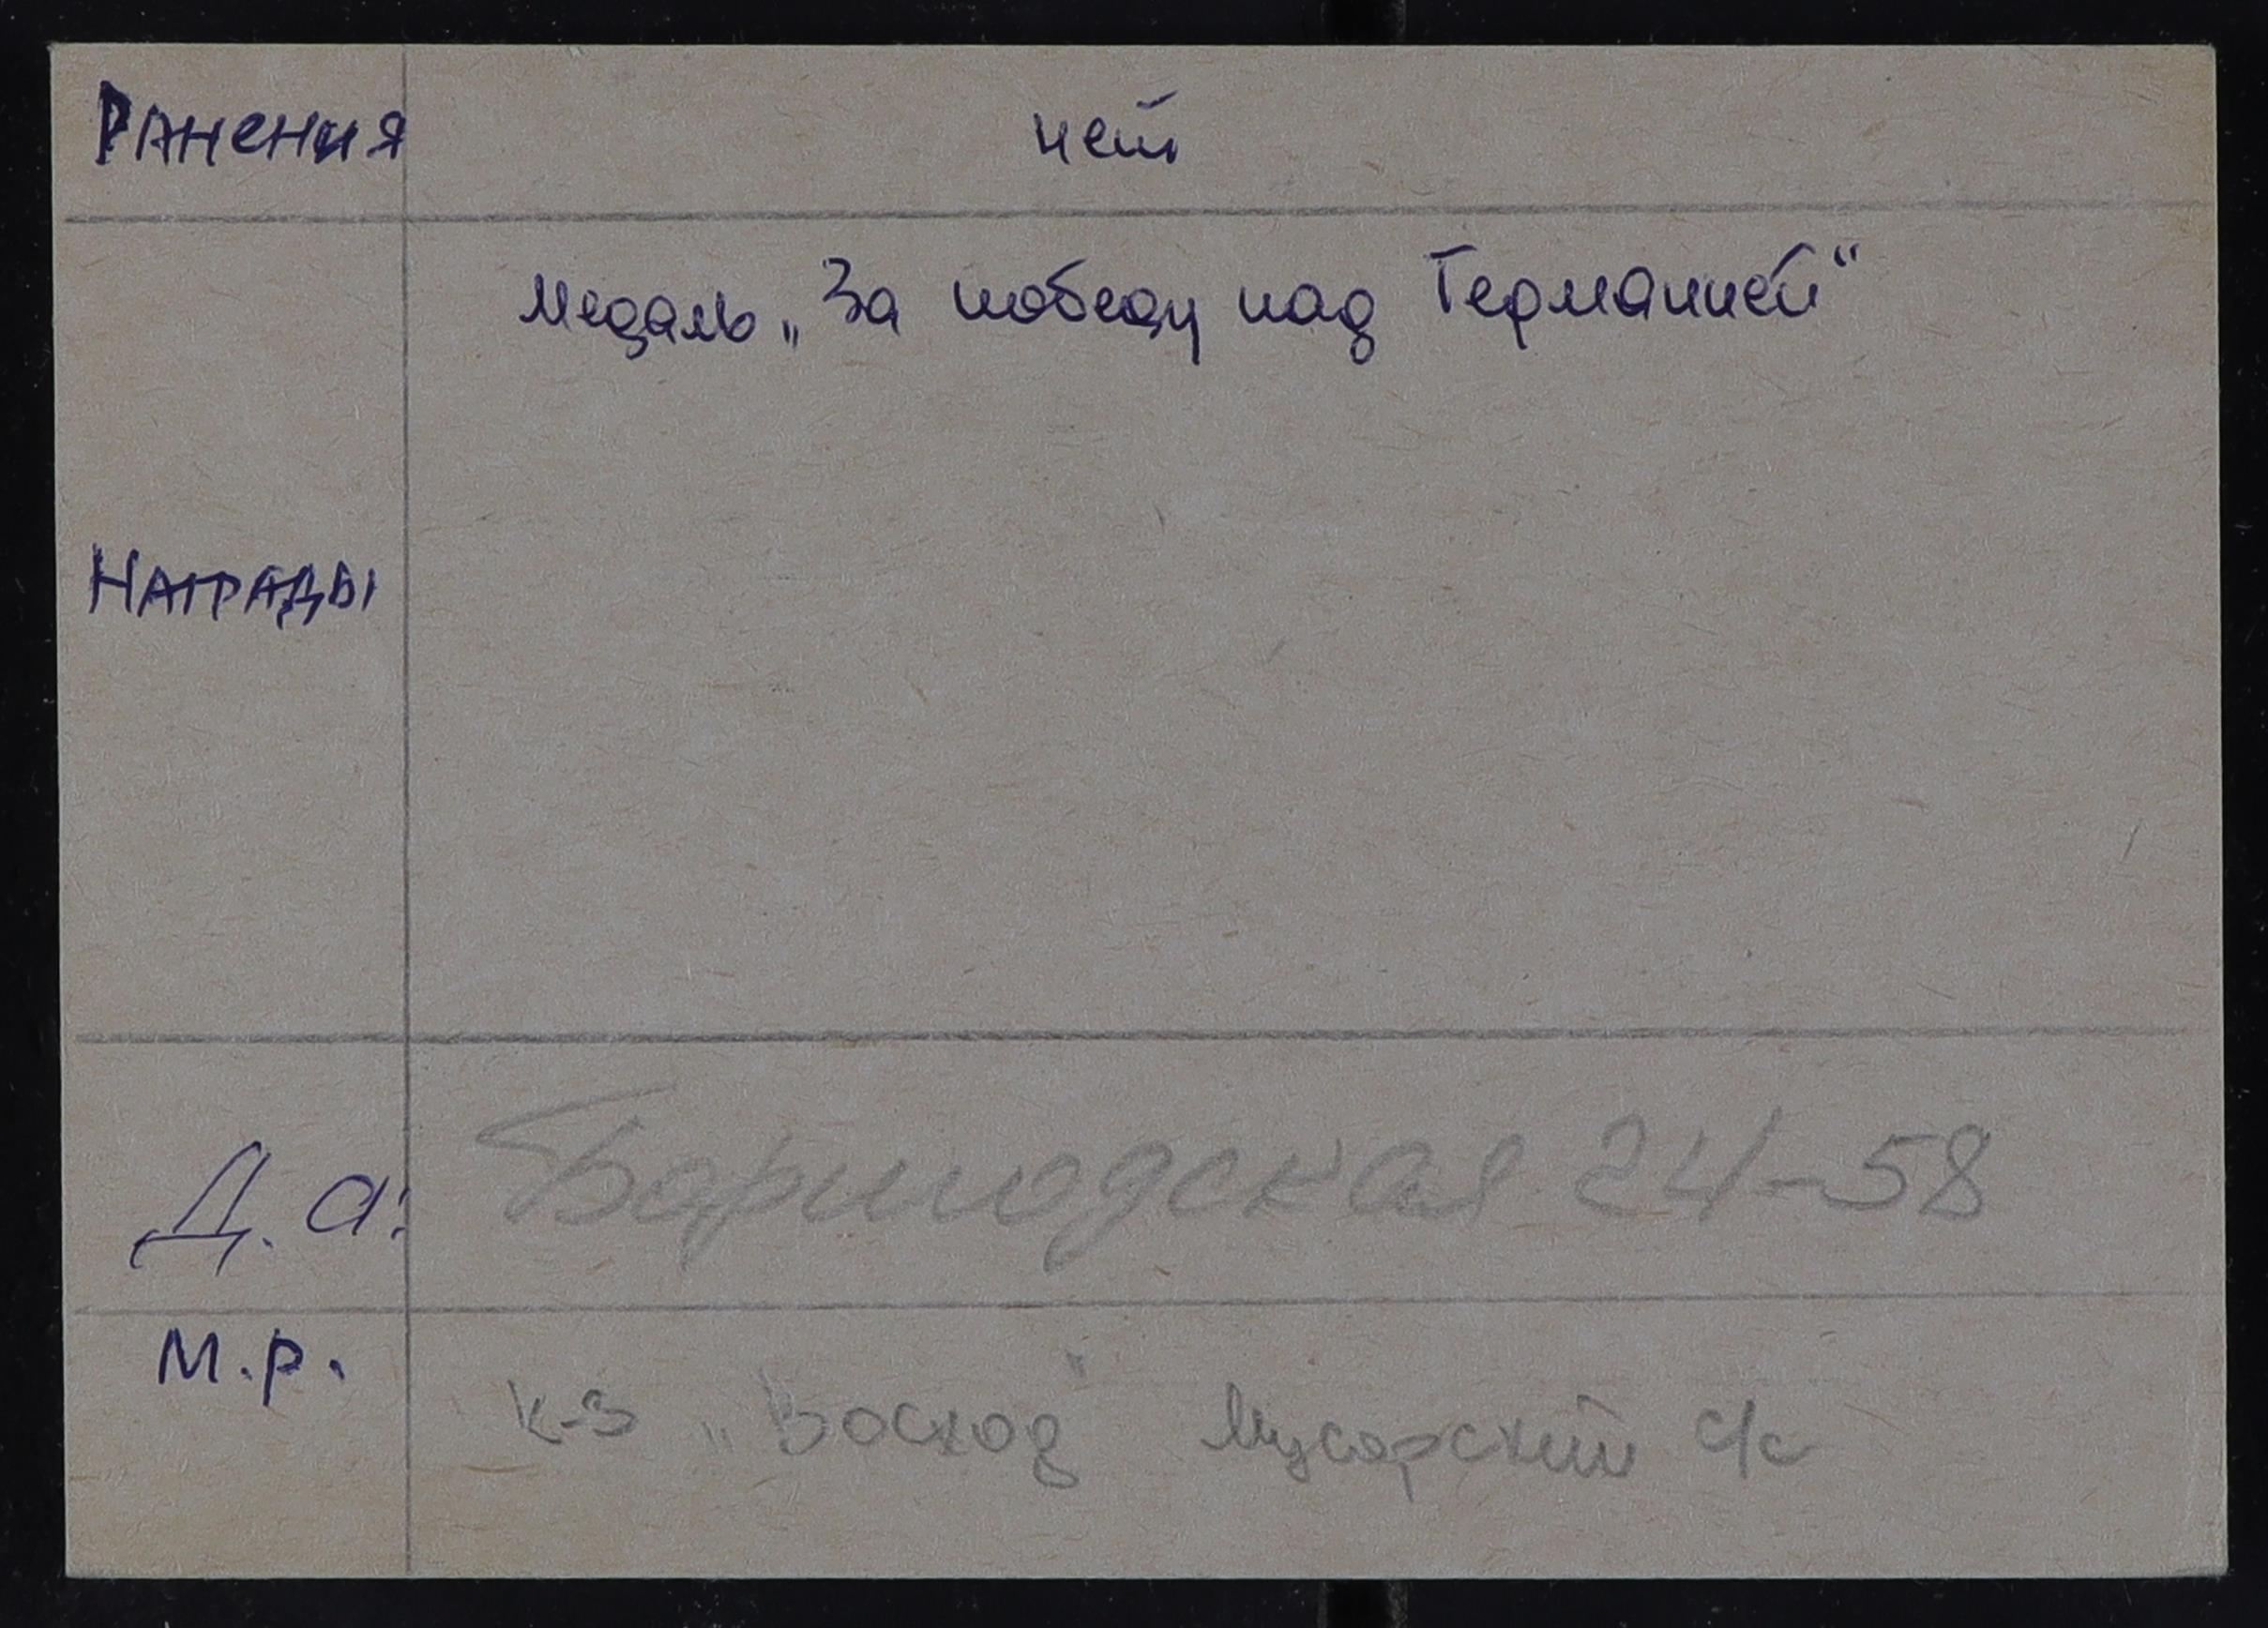 Ранения нет
Медаль „За победу над Германией“
Награды
Д. а: Боршодская 24-58
М.р. к-з „Восход" Мусорский с/с